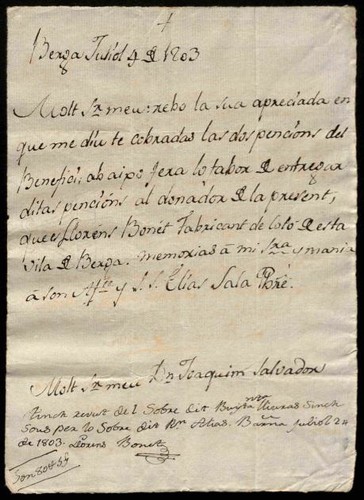 Berga Juliol 4 de 1803
Molt Sr. meu: rebo la sua apreciada en
que me diu te cobradas las dos pencions del
Benefici; ab aixo fera lo favor de entregar
ditas pencions al donador de la present,
que es Llorens Bonet Fabricant de Cotó de esta
Vila de Berga. memorias á mi Sra. y mania
á son Afte. y S. S. Elias Sala Pbre.
Molt Sr. meu Dn. Joaquim Salvador
Tinch rebut de l Sobre dit Lliuras Sinch
Sous per lo Sobre dit Rn. Elias. Barna Juliol 24
de 1803. Llorens Bonet
Son